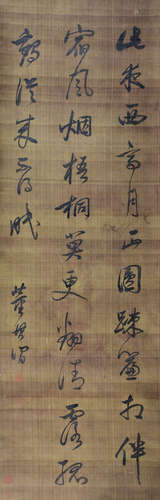 此夜西亭月正圓疎簾相伴
宿風煙梧桐莫更翻清露孤
鶴從來不得眠
董其昌